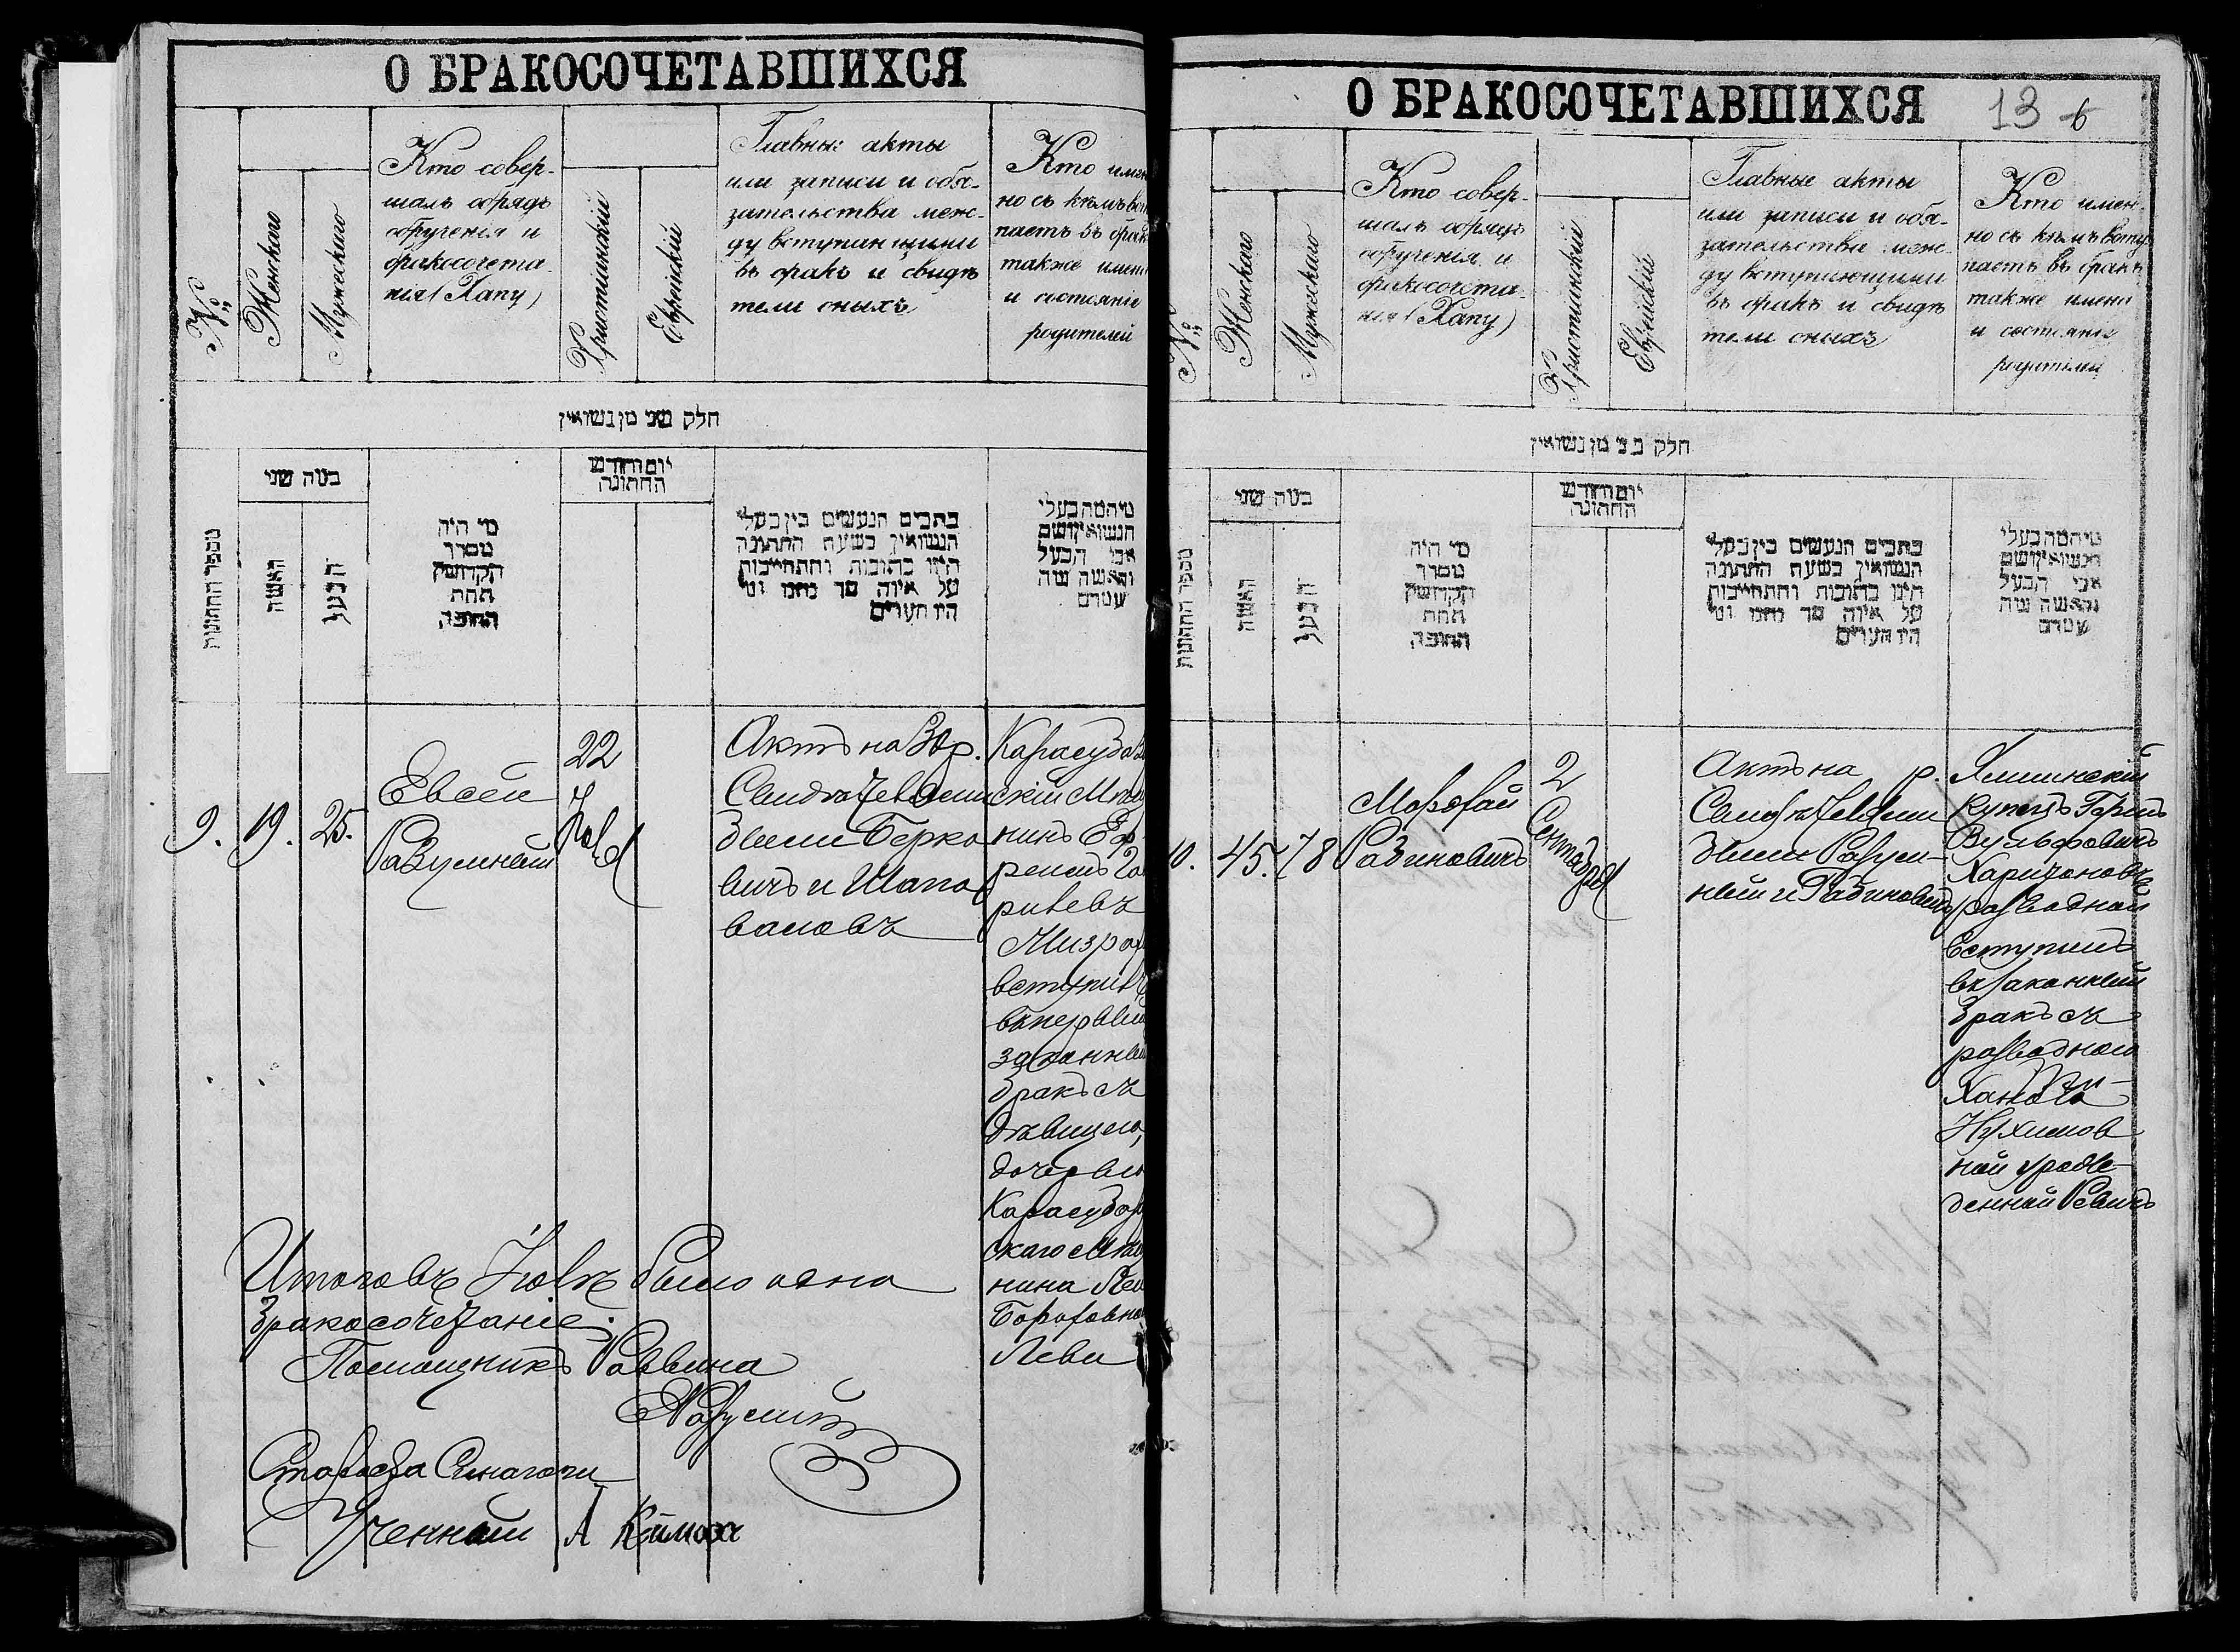 О БРАКОСОЧЕТАВШИХСЯ
№
Женскаго
Мужескаго
Кто совер-
шалъ обрядъ
обрученія и
бракосочета-
нія (Хапу)
Христіанскій
Еврейскій
Главные акты
или записи и обя-
зательства меж-
ду вступающими
въ бракъ и свидѣ
тели оныхъ
Кто имен
но съ кѣмъ вст
паетъ въ брак
также имена
и состояніе
родителей
חלק שני מן נשואין
מספר החתונות
כמה שני
האשה
הבעל
מי היה
מסדר
הקדושין
תחת
החופה
יום וחודש
החתונה
כתבים הנעשים בין בעלי
הנשואין בשעת החתונה
היינו כתובות והתחייבות
על איזה סך נתנו ומי
היו העדים
מי המה בעלי
הנשואין ושם
אבי הבעל
והאשה ומה
עמדם
9.
19.
25.
Евсей
Разумный
22
Іюля
Актъ на 30 р.
Свидѣтели
были Берко
вичъ и Шапо
валовъ
Карасубазар
скій Мѣщ
нинъ Еф
ремъ
Мизрах
вступилъ
въ первый
законный
бракъ съ
дѣвицею,
дочерью
Карасубазар
скаго Мѣщ
нина
Леви
Итого въ Іюлѣ было одно
Бракосочетаніе.
Помощникъ Раввина
ЕРазумный
Староста Синагоги
Ученный А Каймоха
О БРАКОСОЧЕТАВШИХСЯ
13 6
№
Женскаго
Мужескаго
Кто совер-
шалъ обрядъ
обрученія и
бракосочета-
нія (Хапу)
Христіанскій
Еврейскій
Главные акты
или записи и обя-
зательства меж-
ду вступающими
въ бракъ и свидѣ
тели оныхъ
Кто имен-
но съ кѣмъ всту
паетъ въ бракъ
также имена
и состояніе
родителей
חלק שני מן נשואין
מספר החתונות
כמה שני
האשה
הבעל
מי היה
מסדר
הקדושין
תחת
החופה
יום וחודש
החתונה
כתבים הנעשים בין בעלי
הנשואין בשעת החתונה
היינו כתובות והתחייבות
על איזה סך נתנו ומי
היו העדים
מי המה בעלי
הנשואין ושם
אבי הבעל
והאשה ומה
עמדם
10.
45.
78
Мордхай
Рабиновичъ
2
Сентября
Актъ на р.
Свидѣтели
были Разум-
ный и Рабиновичъ
купецъ Гершъ
Вульфовичъ
разводной
вступилъ
въ законный
бракъ съ
разводною
Нухимов
ной урожде-
денной Ревичъ